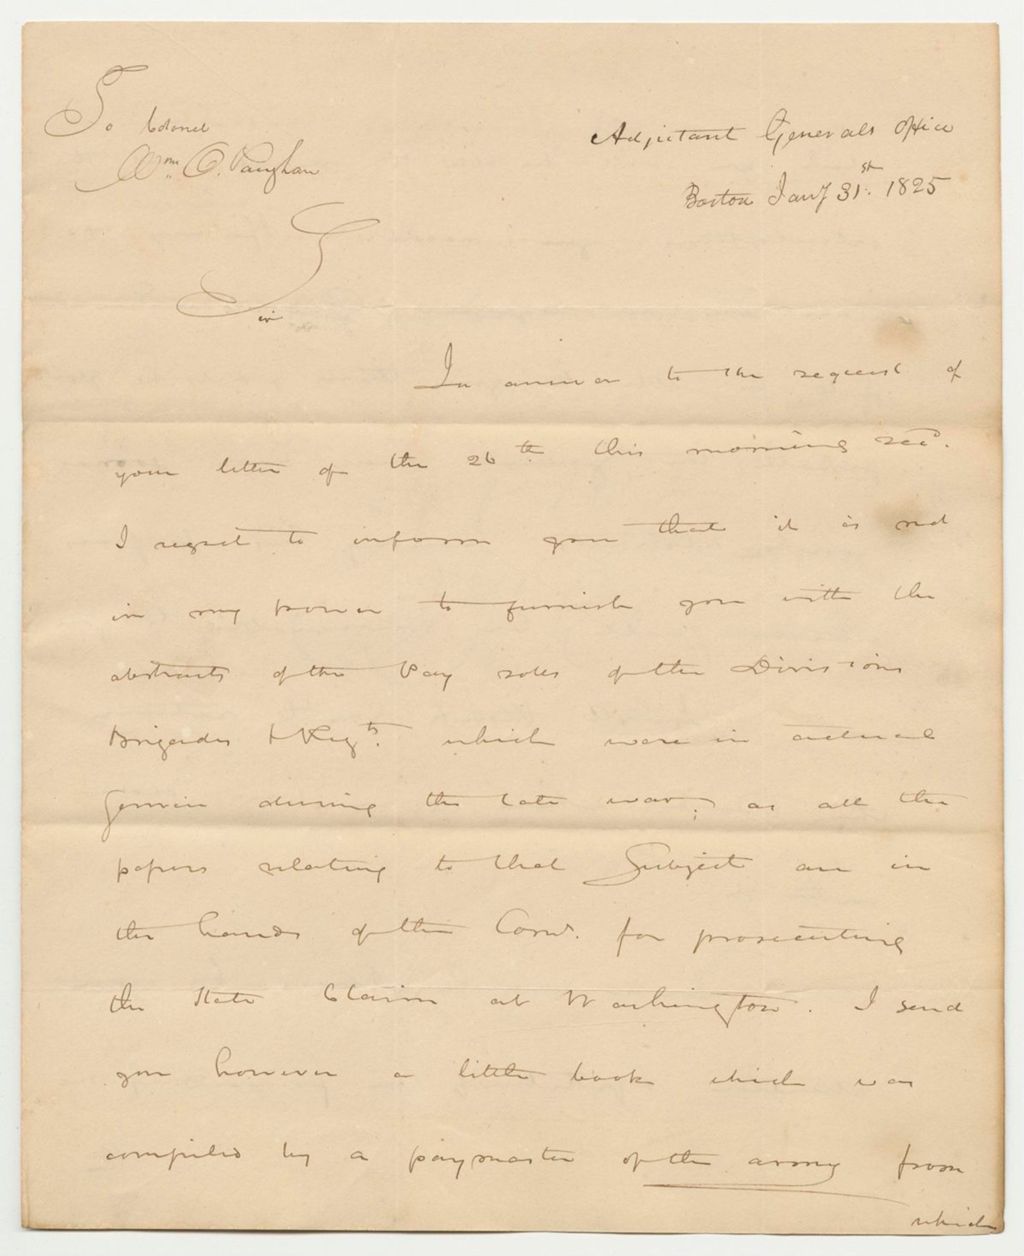 To Colonel
Wm. O. Vaughan
Adjutant Generals Office
Boston Jany 31st. 1825
Sir
In answer to the request of
your letter of the 26th. this morning recd.
I regret to inform you that it is not
in my power to furnish you with the
abstracts of the Pay roles of the Divisions
Brigades & Regts. which were in actual
Service during the late war; as all the
papers relating to that Subject are in
the hands of the Comr. for prosecuting
the State Claim at Washington. I send
you however a little book which was
compiled by a paymaster of the army from
which